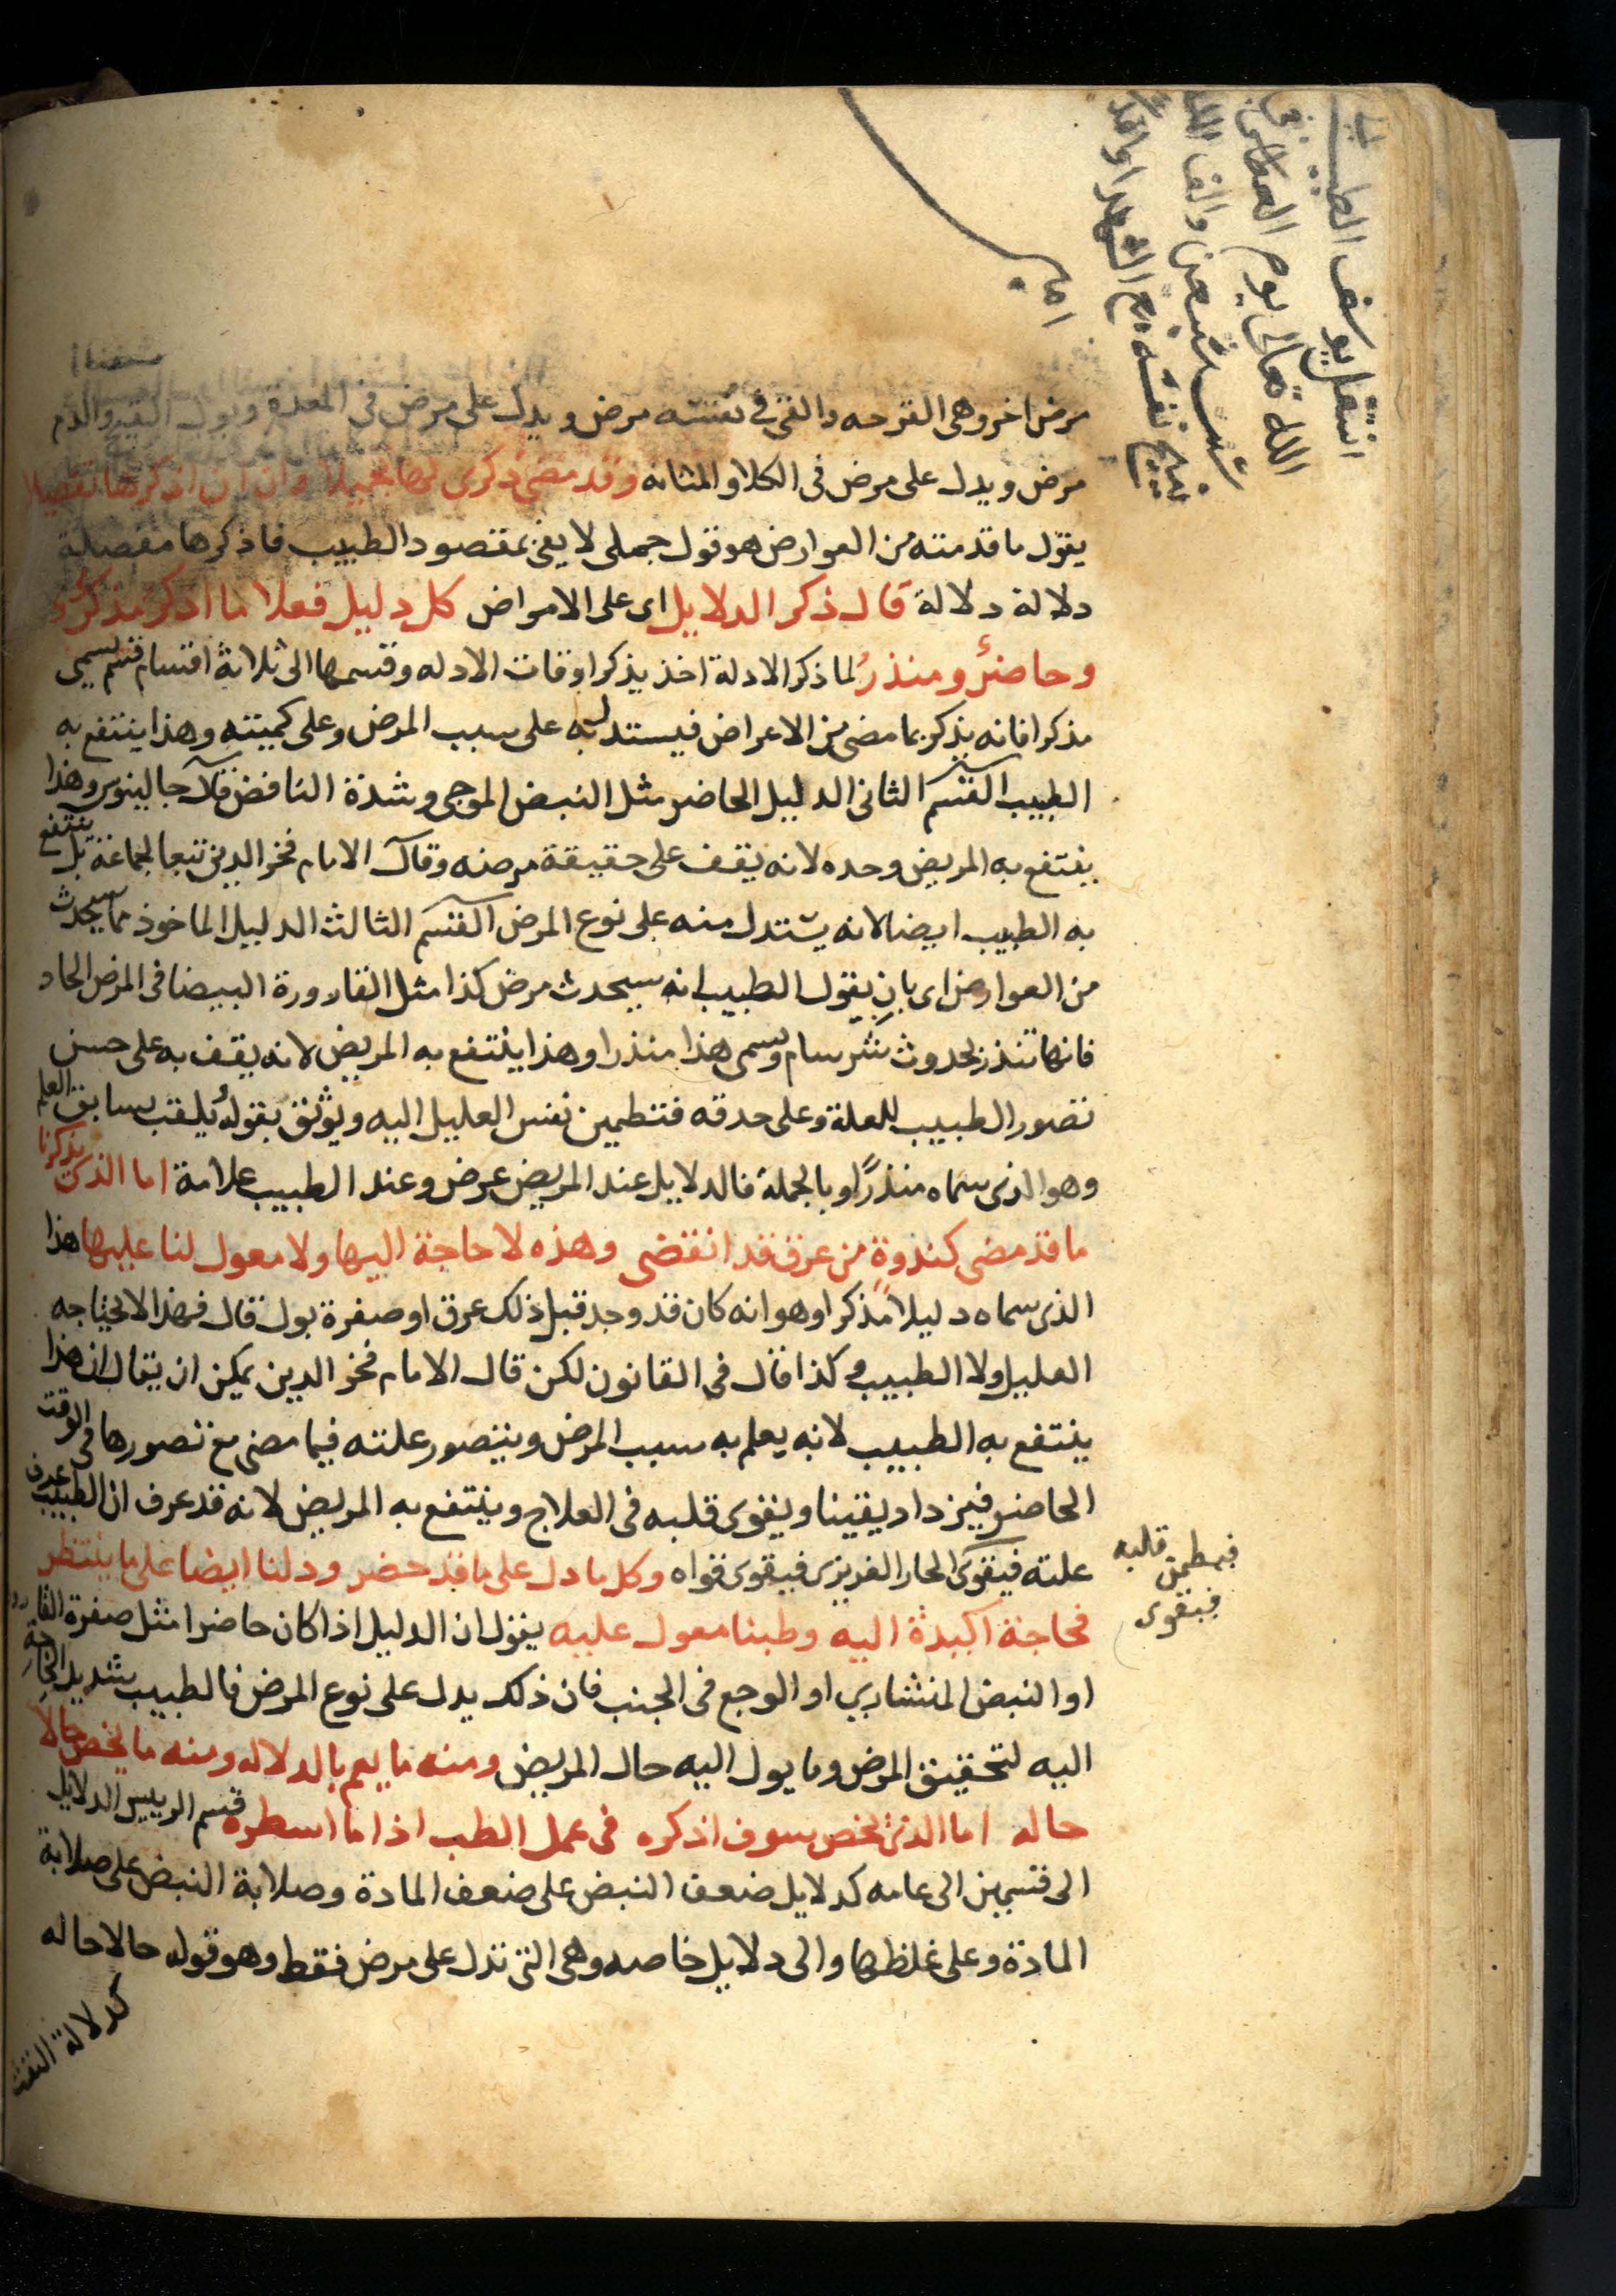 انتقل يوسف الطبيب
الله تعالى يوم
والف
نفسه مع الشهدا
امين
مرض اخر وهى القرحه والقى فى نفسه مرض ويدل على مرض فى المعدة وبول القيح والدم
مرض ويدل على مرض فى الكلا والمثانه وقد مضى ذكرى لها تجميلا وان ان اذكرها تفصيلا
يقول ما قدمته من العوارض هو قول جملى لا يفى بمقصود الطبيب فاذكرها مفصلة
دلالة دلالة قال ذكر الدلايل اى على الامراض كل دليل فعلا ما اذكر مذكر
وحاضر ومنذر لما ذكر الادلة اخذ يذكر اوقات الادله وقسمها الى ثلاثة اقسام قسم يسمى
مذكرا فانه يذكر بما مضى من الاعراض فيستدل به على سبب المرض وعلى كميته وهذا ينتفع به
الطبيب القسم الثانى الدليل الحاضر مثل النبض الموجى وشدة النافض قال جالينوس وهذا
ينتفع به المريض وحده لانه يقف على حقيقة مرضه وقال الامام فخر الدين تبعا لجماعة بل ينتفع
به الطبيب ايضا لانه يستدل منه على نوع المرض القسم الثالث الدليل الماخوذ مما سيحدث
من العوارض اى بان يقول الطبيب انه سيحدث مرض كذا مثل القارورة البيضا فى المرض الحاد
فانها تنذر بحدوث سرسام ويسمى هذا منذرا وهذا ينتفع به المريض لانه يقف به على حسن
تصور الطبيب للعلة وعلى حدقه فتطمين نفس العليل اليه ويوثق بقوله يلقب بسابق العلم
وهو الذى سماه منذرًا وبالجملة فالدلايل عند المريض عرض وعند الطبيب علامة اما الذى يذكرنا
ما قد مضى كندوةٍ من عرق قد انقضى وهذه لا حاجة اليها ولا معول لنا عليها هذا
الذى سماه دليلا مذكرا وهو انه كان قد وجد قبل ذلك عرق او صفرة بول قال فهذا لا يحتاجه
العليل ولا الطبيب وكذا قال فى القانون لكن قال الامام فخر الدين يمكن ان يقال ان هذا
ينتفع به الطبيب لانه يعلم به سبب المرض ويتصور علته فيما مضى مع تصورها فى الوقت
الحاضر فيزداد يقينا ويقوى قلبه فى العلاج وينتفع به المريض لانه قد عرف ان الطبيب عرف
علته فيقوى الحار الغريزى فيقوى قواه وكل ما دل على ما قد حضر ودلنا ايضا على ما ينتظر
فيطمن قلبه
فيقوى
فحاجة اكيدة اليه وطبنا معول عليه يقول ان الدليل اذا كان حاضرا مثل صفرة القارورة
او النبض المنشارى او الوجع فى الجنب فان ذلك يدل على نوع المرض فالطبيب شديد الحاجة
اليه لتحقيق المرض وما يول اليه حال المريض ومنه ما يعم بالدلاله ومنه ما يخص حالا
حاله اما الذى يخص سوف اذكره فى عمل الطب اذا ما اسطره قسم الرييس الدلايل
الى قسمين الى عامه كدلايل ضعف النبض على ضعف المادة وصلابة النبض على صلابة
المادة وعلى غلظها والى دلايل خاصه وهى التى تدل على مرض فقط وهو قوله حالا حاله
كدلالة النفث